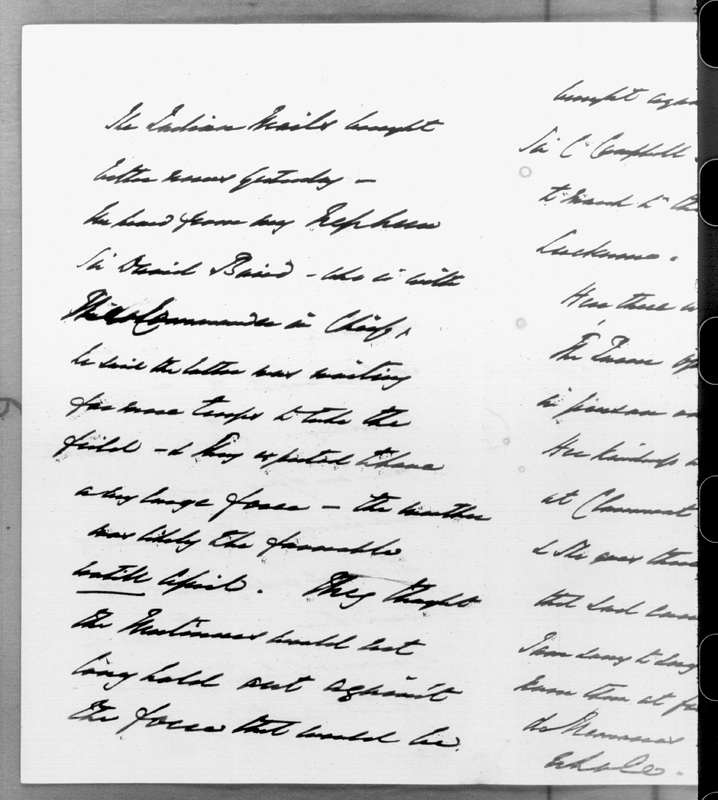 The Indian Mails brought
better news yesterday —
We heard from my Nephew
Sir David Baird – who is with
The Commander in Chief,
he said the latter was waiting
for more troops to take the
field – & they expected to have
a very large force — the weather
was likely to be favorable
until April. They thought
the Mutineers could not
long hold out against
the force that would be
brought again
Sir C. Campbell –
to march to the
Lucknow.
Here there
The Queen
in person
Her kindness
at Claremont
& she goes
that Lord
I am sorry to
them at
de Nemours
whole.